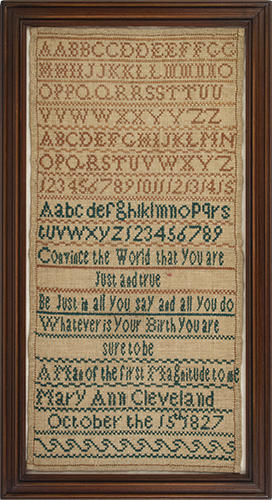 AABBCCDDEEFFGG
HHIIJJKKLLMMNNO
OPPQQRRSSTTUU
VVWWXXYYZZ
ABCDEFGHIJKLMN
OPQRSTUVWXYZ
123456789101112131415
Aabcdefghiklmnopqrs
tuvwxyz123456789
Convince the World that You are
Just and true
Be Just in all you say and all you do
Whatever is Your Birth You are
sure to be
A Man of the first Magnitude to me
Mary Ann Cleveland
October the 15th 1827